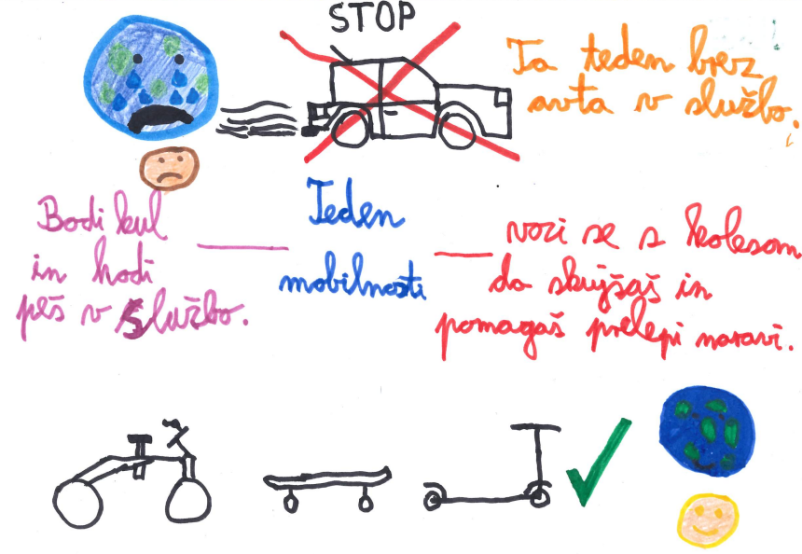 STOP
Ta teden brez
avta v službo.
Bodi kul
in hodi
peš v službo.
Teden
mobilnosti
vozi se s kolesom
da shujšaš in
pomagaš prelepi naravi.